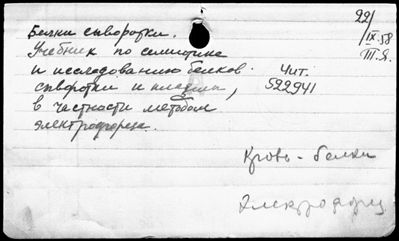 Белки сыворотки.
Учебник по семиотике
и исследованию белков
сыворотки и плазмы,
в частности методом
электрофореза.
Чит.
522941
22/
IX.58
Т.Я.
Кровь - белки
Электрофорез